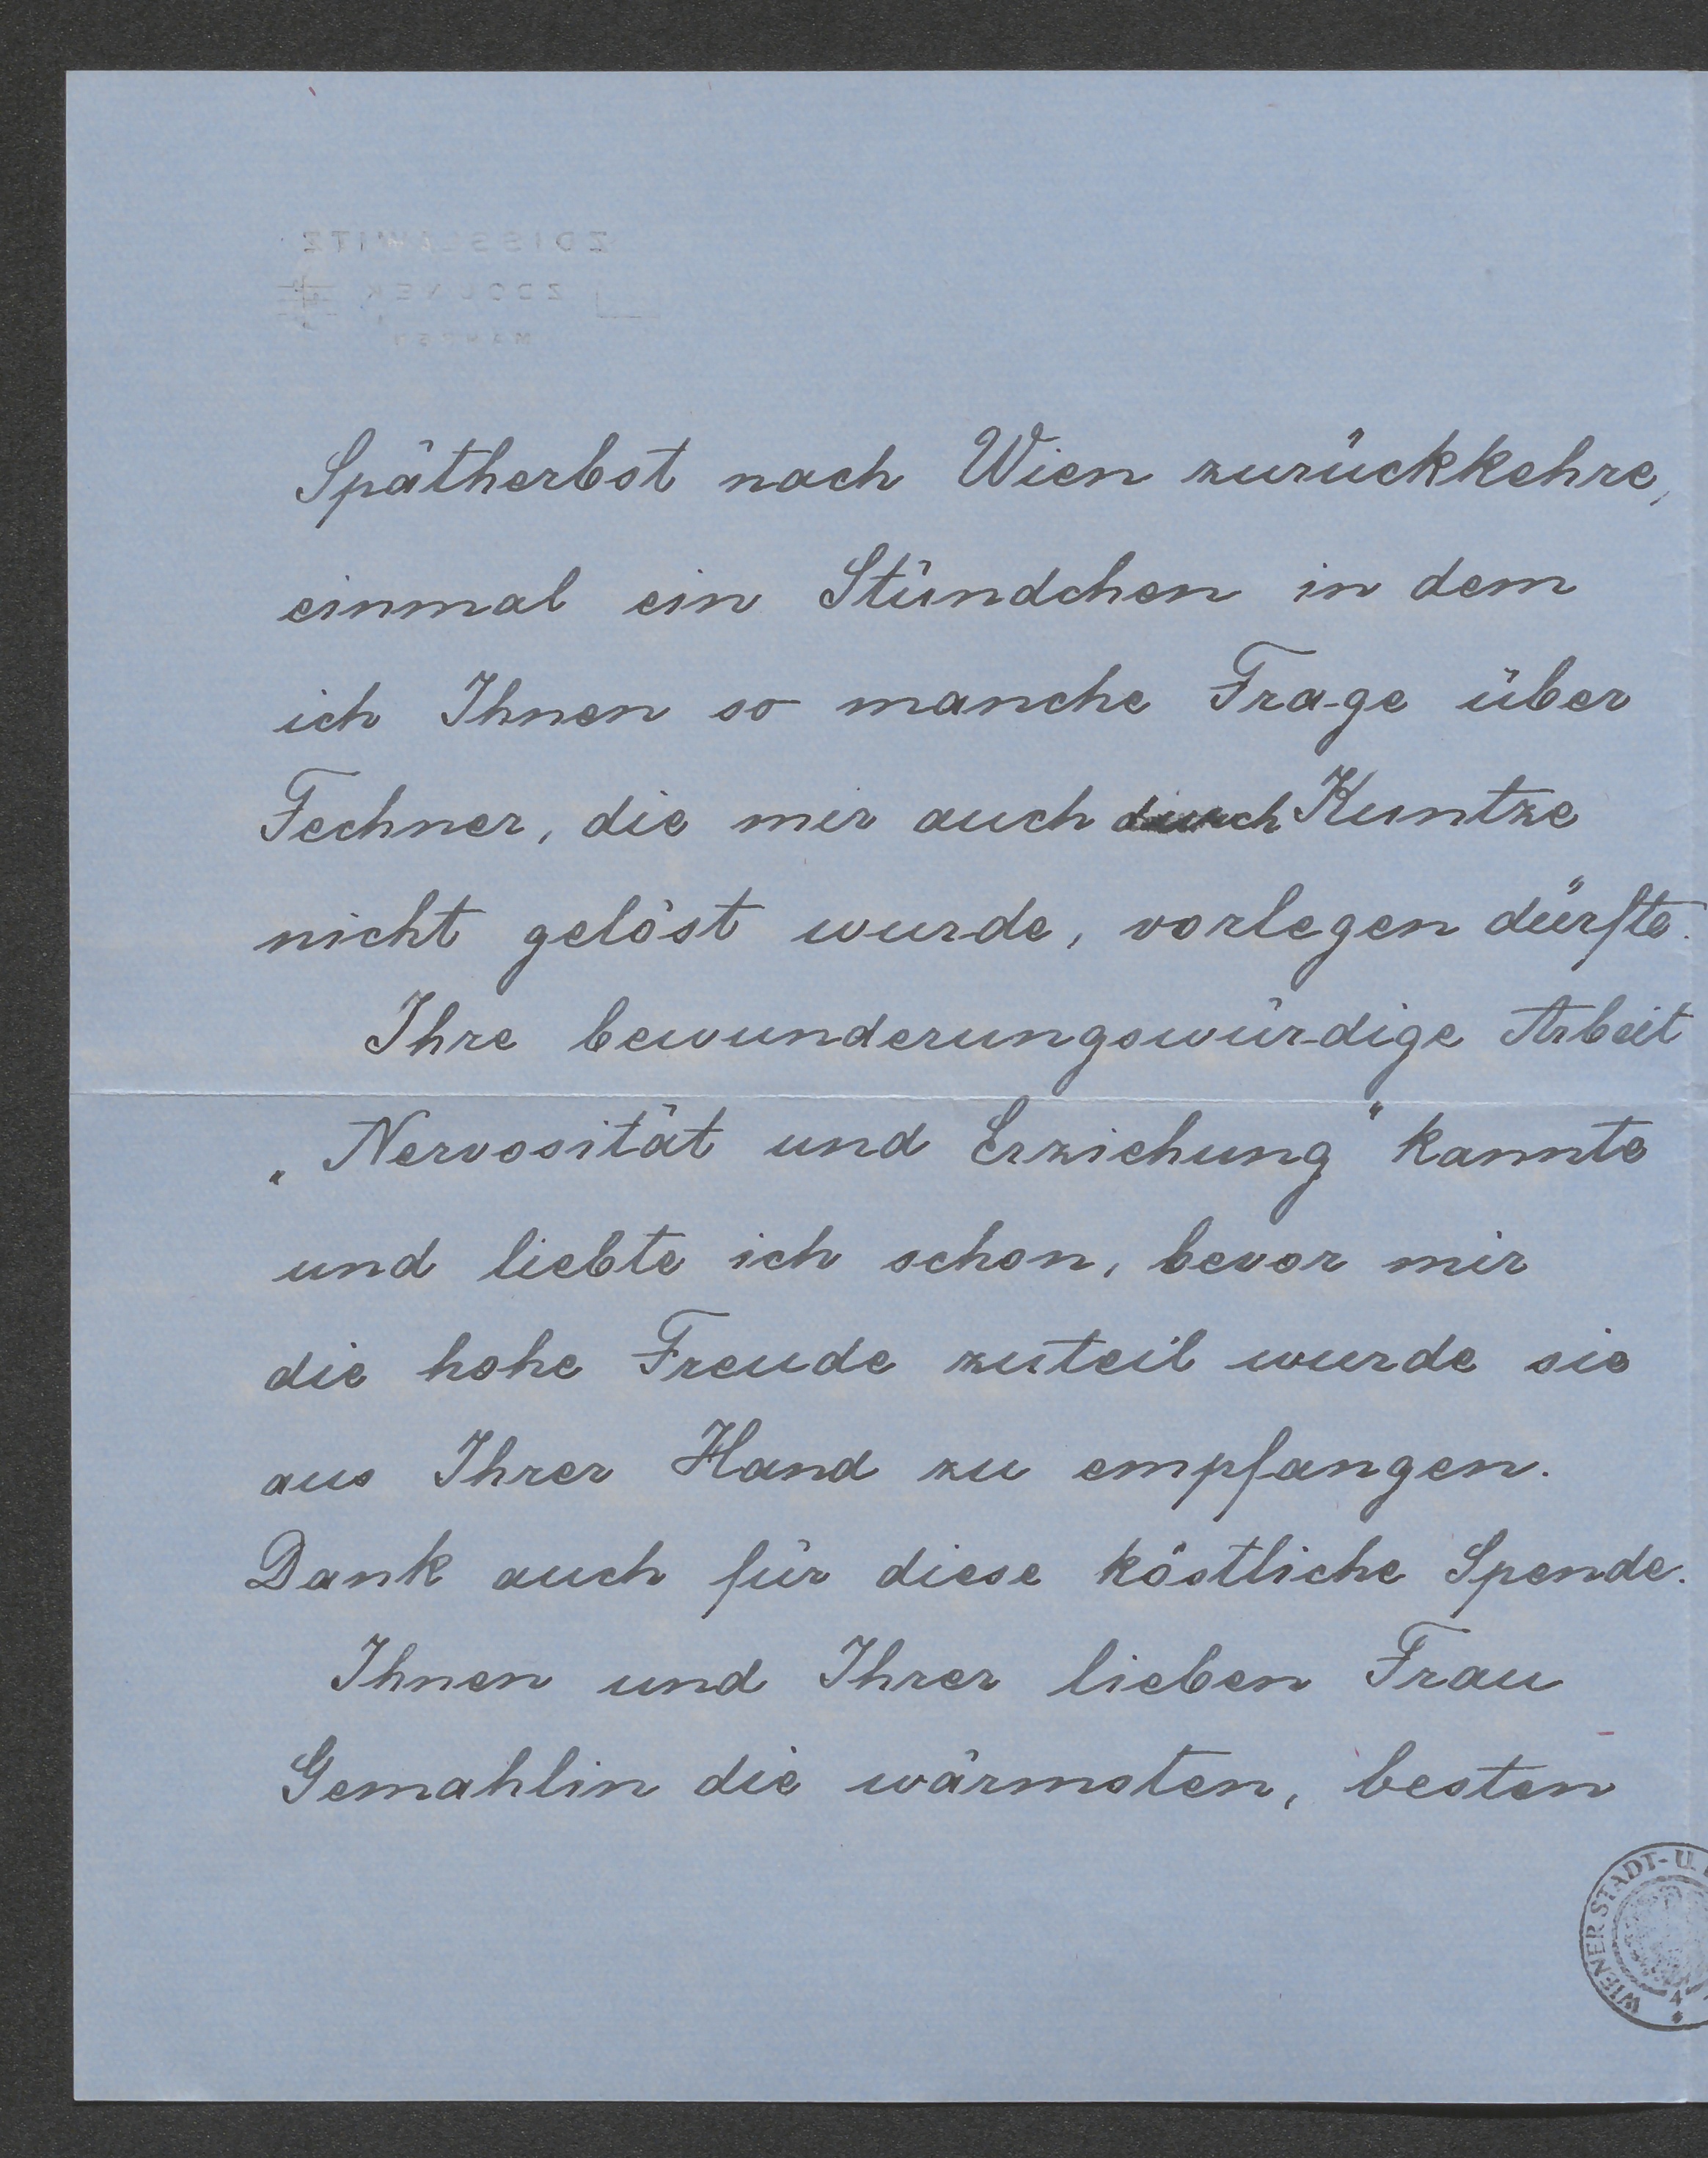 ZDISSLAWITZ
ZDOUNEK
Spätherbst nach Wien zurückkehre,
einmal ein Stündchen in dem
ich Ihnen so manche Frage über
Fechner, die mir auch durch Kuntze
nicht gelöst wurde, vorlegen dürfte.
Ihre bewunderungswürdige Arbeit
„Nervosität und Erziehung“ kannte
und liebte ich schon, bevor mir
die hohe Freude zuteil wurde sie
aus Ihrer Hand zu empfangen.
Dank auch für diese köstliche Spende.
Ihnen und Ihrer lieben Frau
Gemahlin die wärmsten, besten
WIENER STADT- U.